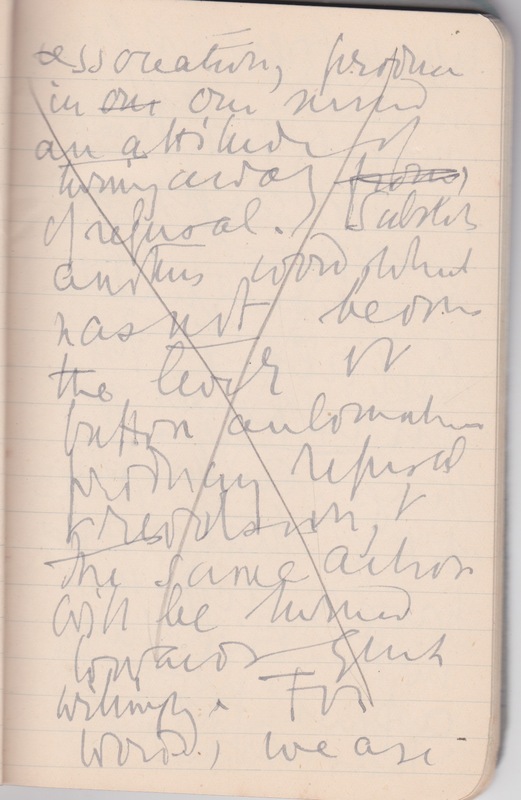 association, produce
in our our mind
an attitude of
turning away from,
of refusal. Substit
another word, what
has not become
the lever or
button automatic
producing refusal
& revulsion, &
the same action
will be turned
towards quite
willingly. For
words, we are